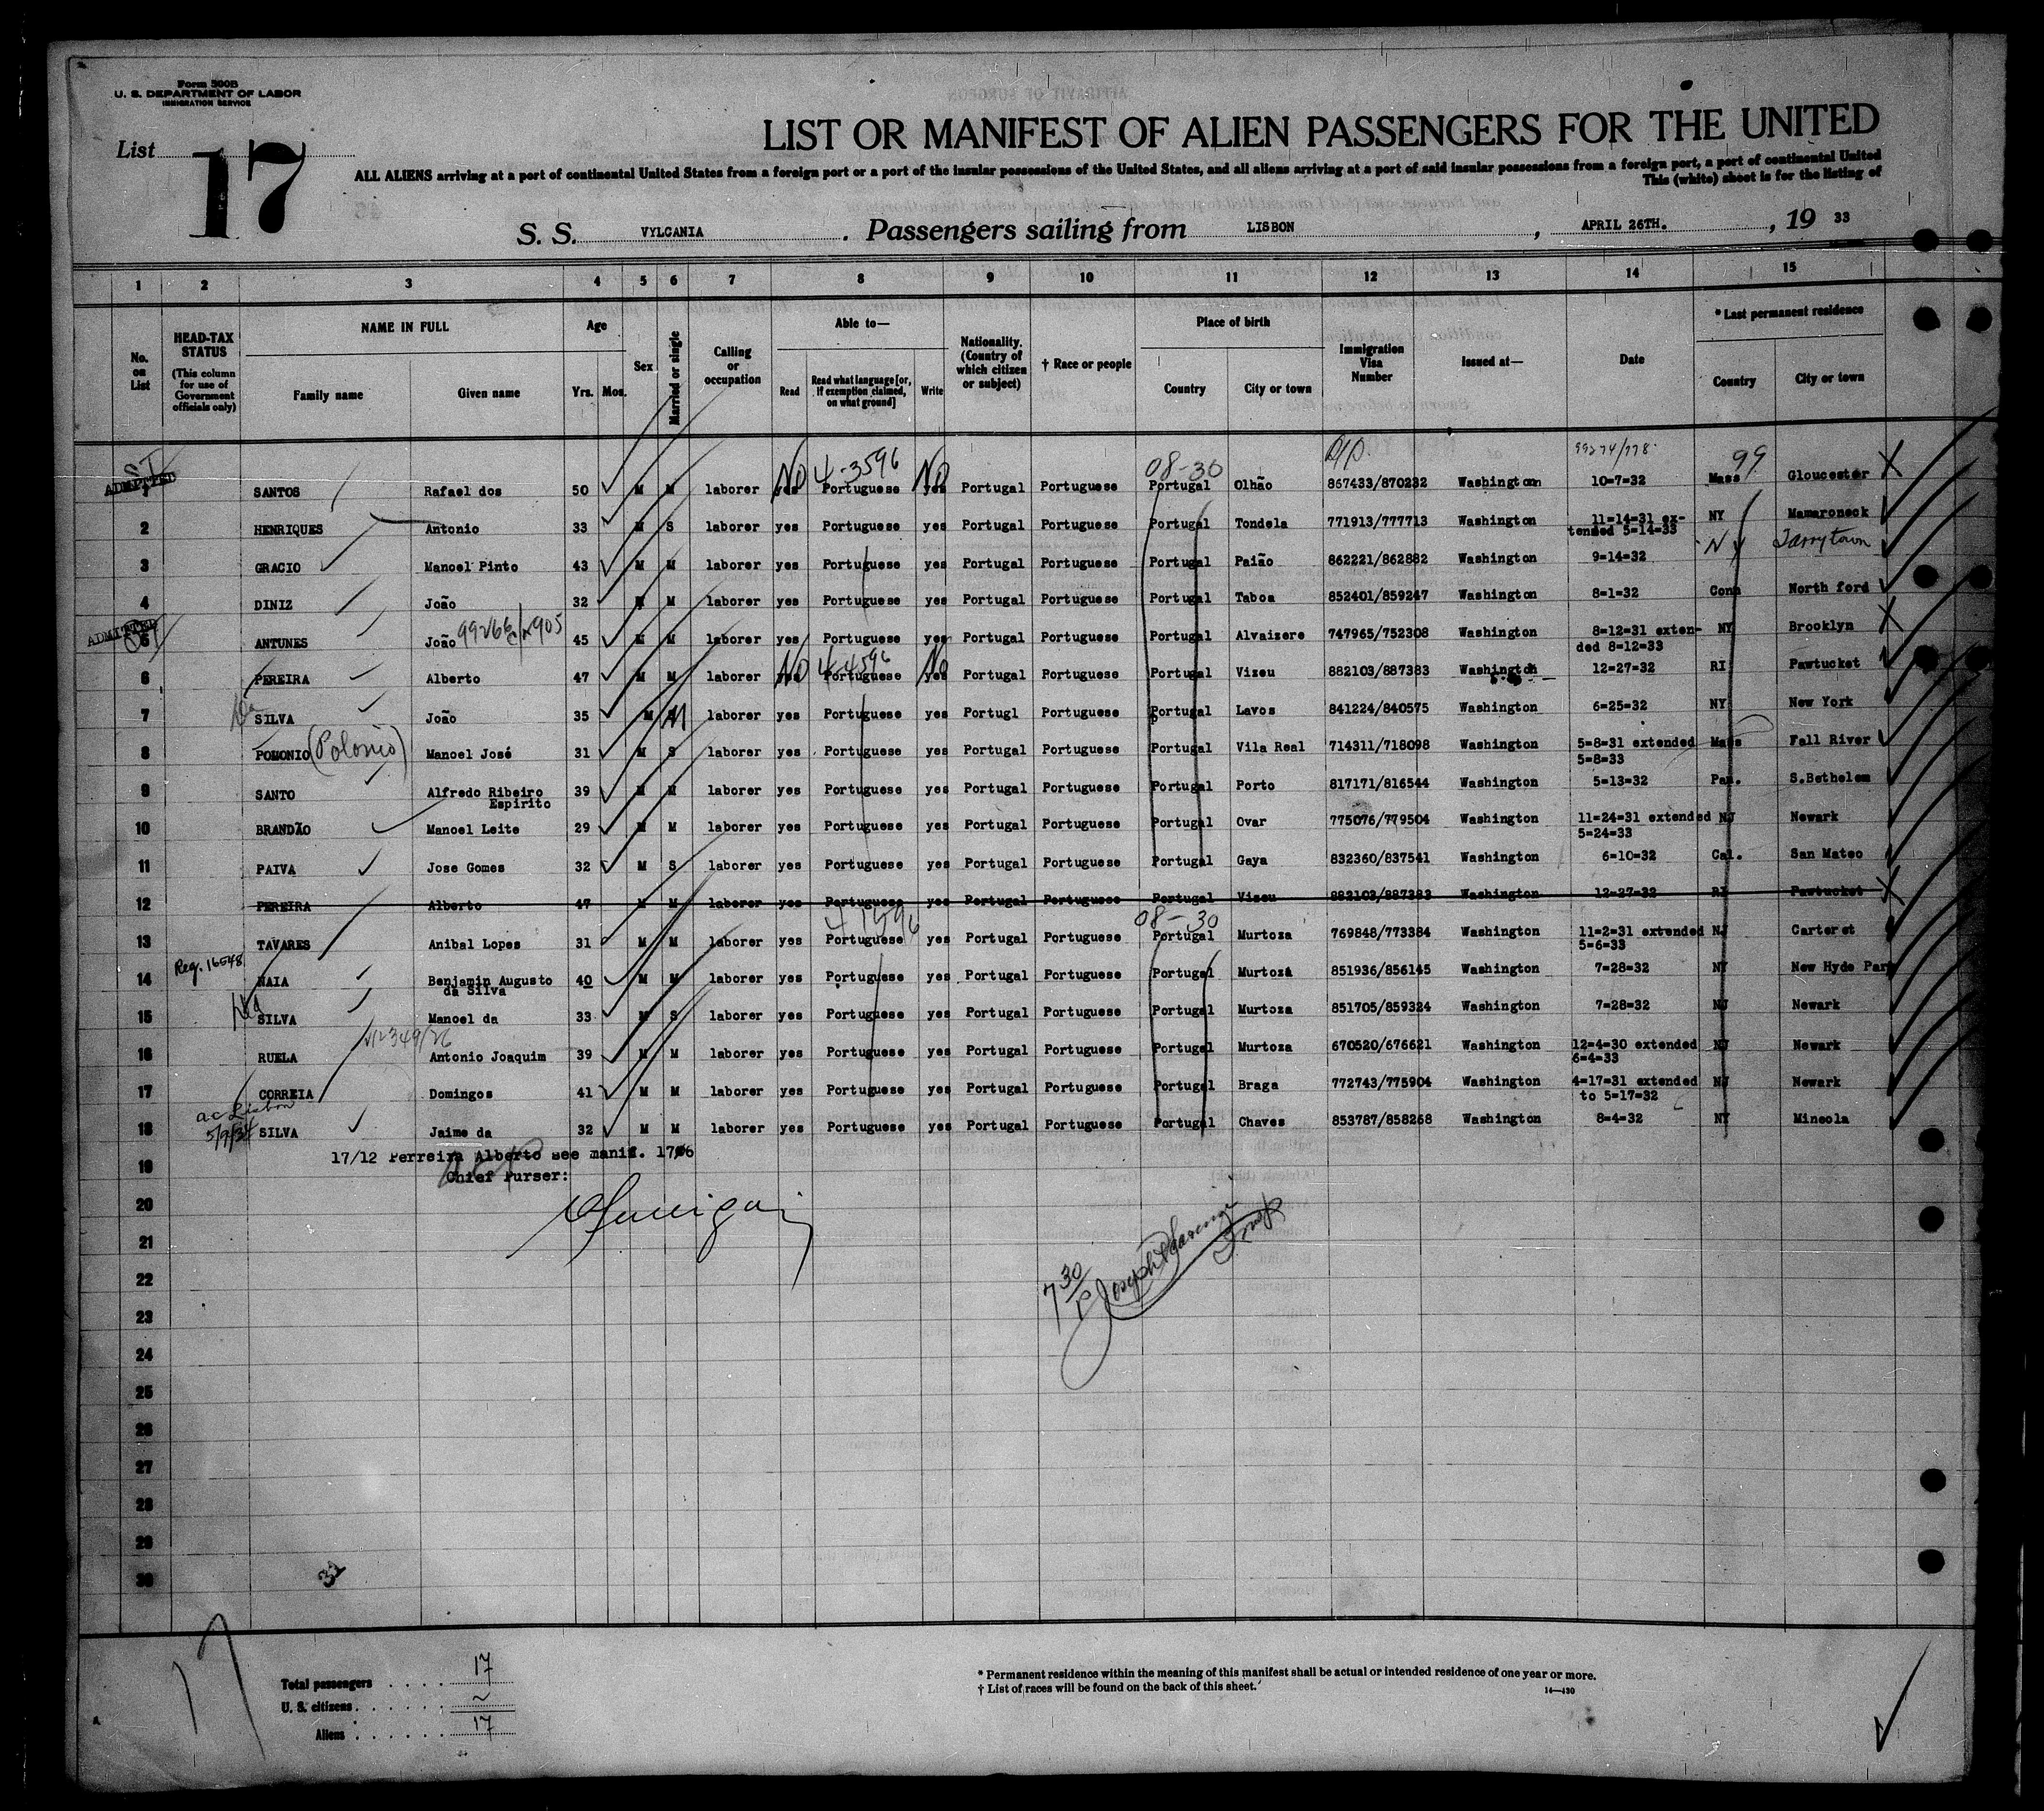 Form 500B
U. S. DEPARTMENT OF LABOR
IMMIGRATION SERVICE
List 17
LIST OR MANIFEST OF ALIEN PASSENGERS FOR THE UNITED
ALL ALIENS arriving at a port of continental United States from a foreign port or a port of the insular possessions of the United States, and all aliens arriving at a port of said insular possessions from a foreign port, a port of continental United
This (white) sheet is for the listing of
S. S. VYLCANIA . Passengers sailing from LISBON , APRIL 26TH. , 19 33
1 2 3 4 5 6 7 8 9 10 11 12 13 14 15
No. on List
HEAD-TAX STATUS (This column for use of Government officials only)
NAME IN FULL Family name Given name
Age Yrs. Mos.
Sex
Married or single
Calling or occupation
Able to— Read Read what language [or, if exemption claimed, on what ground] Write
Nationality. (Country of which citizen or subject)
† Race or people
Place of birth Country City or town
Immigration Visa Number
Issued at—
Date
* Last permanent residence Country City or town
No 4-3596 No 08-30 99274/778 99
ADMITTED
1 SANTOS Rafael dos 50 M M laborer yes Portuguese yes Portugal Portuguese Portugal Olhão 867433/870232 Washington 10=7=32 Mass Gloucester X
2 HENRIQUES Antonio 33 M S laborer yes Portuguese yes Portugal Portuguese Portugal Tondela 771913/777713 Washington 11=14=31 ex-tended 5=14=33 NY Mamaroneck
3 GRACIO Manoel Pinto 43 M M laborer yes Portuguese yes Portugal Portuguese Portugal Paião 862221/862882 Washington 9=14=32 N Y Tarrytown
4 DINIZ João 32 M M laborer yes Portuguese yes Portugal Portuguese Portugal Taboa 852401/859247 Washington 8=1=32 Conn North ford
ADMITTED
5 ANTUNES João 45 M M laborer yes Portuguese yes Portugal Portuguese Portugal Alvaizere 747965/752308 Washington 8=12=31 exten-ded 8=12=33 NY Brooklyn X
No 4-4596 No
6 PEREIRA Alberto 47 M M laborer yes Portuguese yes Portugal Portuguese Portugal Vizeu 882103/887383 Washington 12=27=32 RI Pawtucket
7 SILVA João 35 M M laborer yes Portuguese yes Portugl Portuguese Portugal Lavos 841224/840575 Washington 6=25=32 NY New York
8 POMONIO (Polonio) Manoel José 31 M S laborer yes Portuguese yes Portugal Portuguese Portugal Vila Real 714311/718098 Washington 5=8=31 extended 5=8=33 Mass Fall River
9 SANTO Alfredo Ribeiro Espirito 39 M M laborer yes Portuguese yes Portugal Portuguese Portugal Porto 817171/816544 Washington 5=13=32 Pen. S.Bethelem
10 BRANDÃO Manoel Leite 29 M M laborer yes Portuguese yes Portugal Portuguese Portugal Ovar 775076/779504 Washington 11=24=31 extended 5=24=33 NJ Newark
11 PAIVA Jose Gomes 32 M S laborer yes Portuguese yes Portugal Portuguese Portugal Gaya 832360/837541 Washington 6=10=32 Cal. San Mateo
12 PEREIRA Alberto 47 M M laborer yes Portuguese yes Portugal Portuguese Portugal Vizeu 882103/887383 Washington 12=27=32 RI Pawtucket X
08-30
13 TAVARES Anibal Lopes 31 M M laborer yes Portuguese yes Portugal Portuguese Portugal Murtoza 769848/773384 Washington 11=2=31 extended 5=6=33 NJ Carteret
Reg. 16548
14 NAIA Benjamin Augusto da Silva 40 M M laborer yes Portuguese yes Portugal Portuguese Portugal Murtoza 851936/856145 Washington 7=28=32 NY New Hyde Park
15 SILVA Manoel da 33 M S laborer yes Portuguese yes Portugal Portuguese Portugal Murtoza 851705/859324 Washington 7=28=32 NJ Newark
16 RUELA Antonio Joaquim 39 M M laborer yes Portuguese yes Portugal Portuguese Portugal Murtoza 670520/676621 Washington 12=4=30 extended 6=4=33 NJ Newark
17 CORREIA Domingos 41 M M laborer yes Portuguese yes Portugal Portuguese Portugal Braga 772743/775904 Washington 4=17=31 extended to 5=17=32 NJ Newark
ac Lisbon 5/9/34
18 SILVA Jaime da 32 M M laborer yes Portuguese yes Portugal Portuguese Portugal Chaves 853787/858268 Washington 8=4=32 NY Mineola
17/12 Perreira Alberto see manif. 17/6
19
Chief Purser:
20
21
22
7 30/P Joseph Insp
23
24
25
26
27
28
29
30
17
Total passengers 17
U. S. citizens ~
Aliens 17
* Permanent residence within the meaning of this manifest shall be actual or intended residence of one year or more.
† List of races will be found on the back of this sheet.
14—430